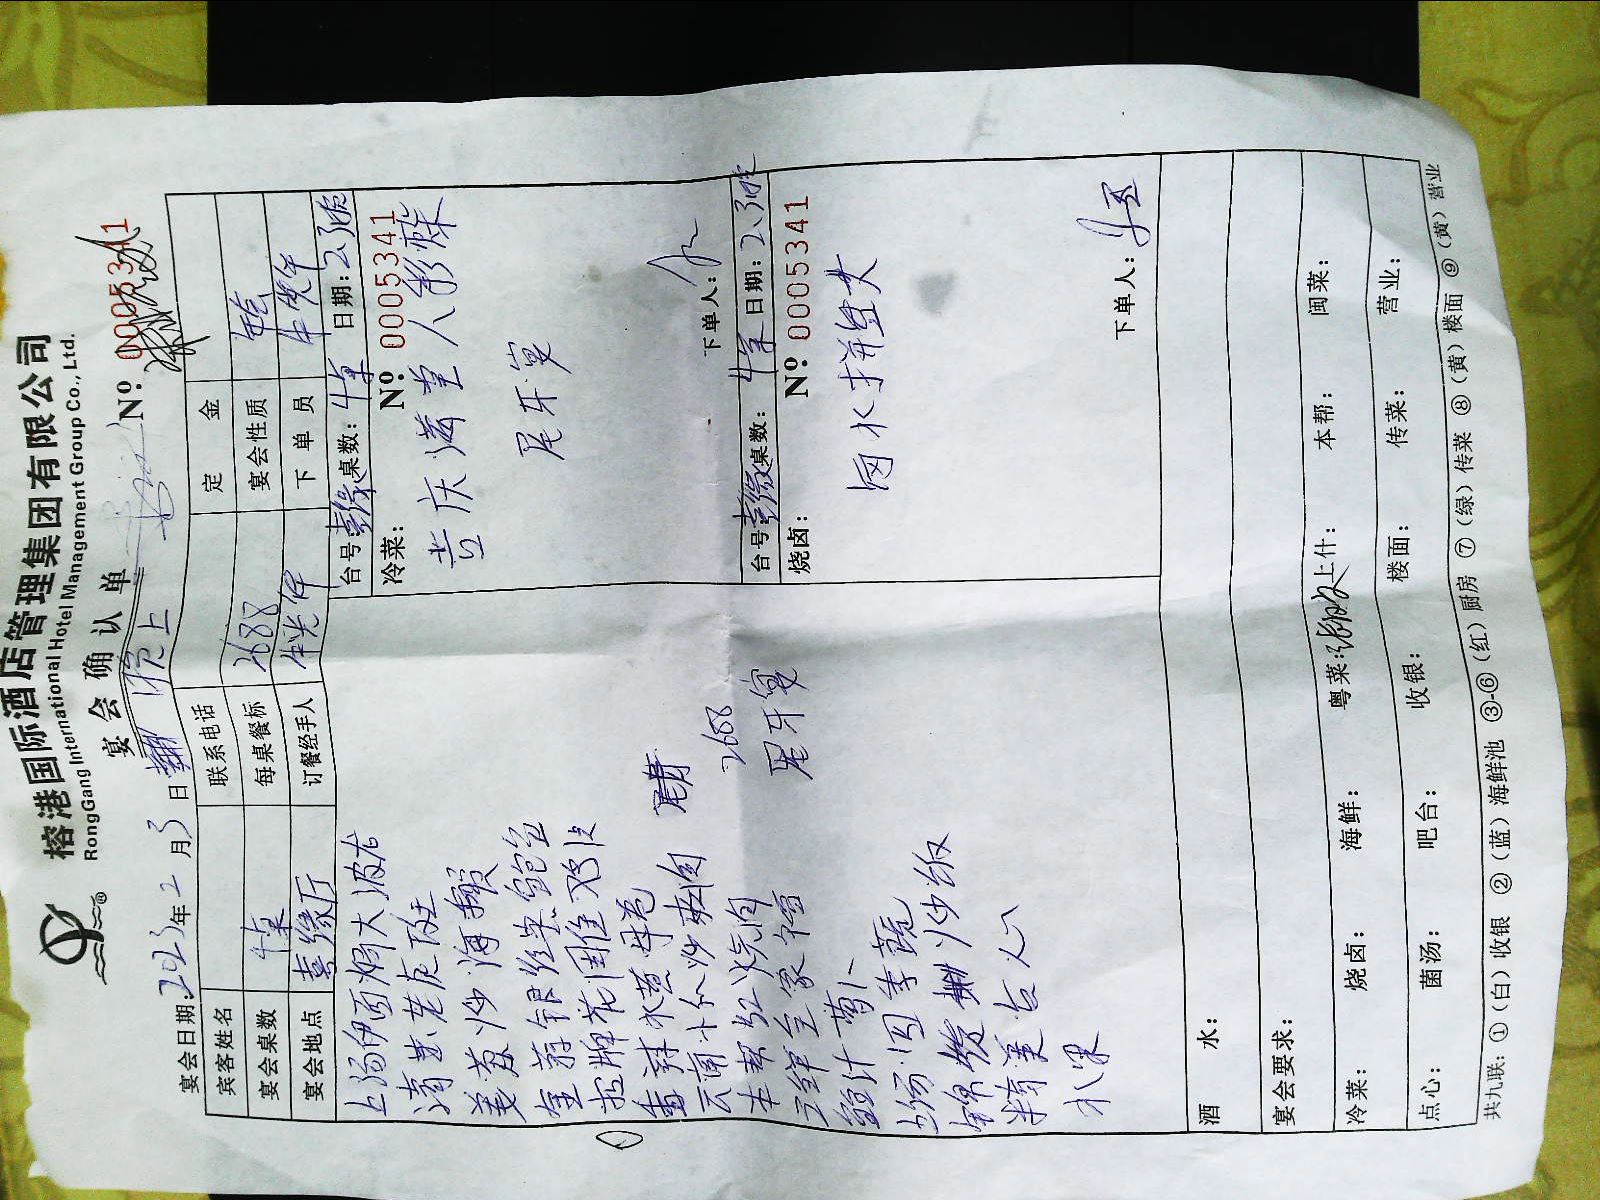 榕港国际酒店管理集团有限公司
RongGang International Hotel Management Group Co., Ltd.
宴会确认单
Nº: 0005341
宴会日期: 2023年2月3日 晚上
宾客姓名 联系电话 定金
宴会桌数 4桌 每桌餐标 2688 宴会性质
宴会地点 喜缘厅 订餐经手人 下单员
上汤伊面焗大波龙
清蒸老虎斑
姜葱炒海蟹
金蒜银丝蒸鲍鱼
招牌花雕鸡
香辣水煮
云南小炒
本帮红烧肉
三鲜全家福
鲍汁萝卜
上汤四季蔬
炒饭
精美点心
水果
尾牙宴
2688
台号: 喜缘 桌数: 4桌 日期: 2.3晚
冷菜: Nº: 0005341
吉庆满堂八彩碟
尾牙宴
下单人:
台号: 喜缘 桌数: 4桌 日期: 2.3晚
烧卤: Nº: 0005341
卤水拼
下单人:
酒水:
宴会要求:
冷菜: 烧卤: 海鲜: 粤菜: 上什: 本帮: 闽菜:
点心: 菌汤: 吧台: 收银: 楼面: 传菜: 营业:
共九联: ①(白)收银 ②(蓝)海鲜池 ③-⑥(红)厨房 ⑦(绿)传菜 ⑧(黄)楼面 ⑨(黄)营业